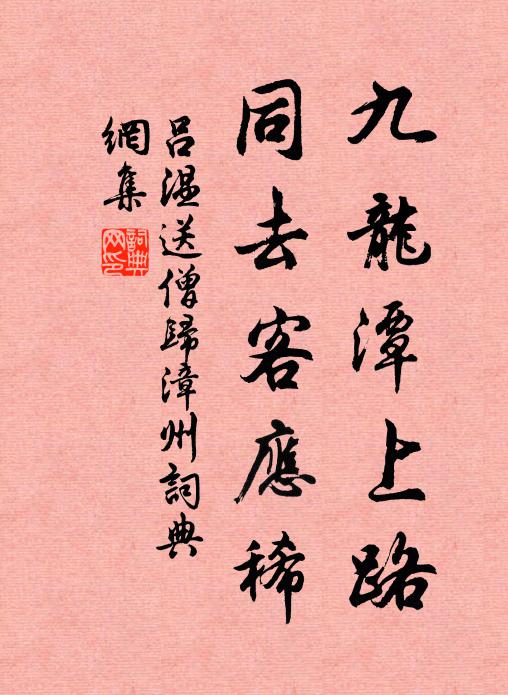 九龍潭上路
同去客應稀
呂温送僧歸漳州詞典
網集
詞典
网印